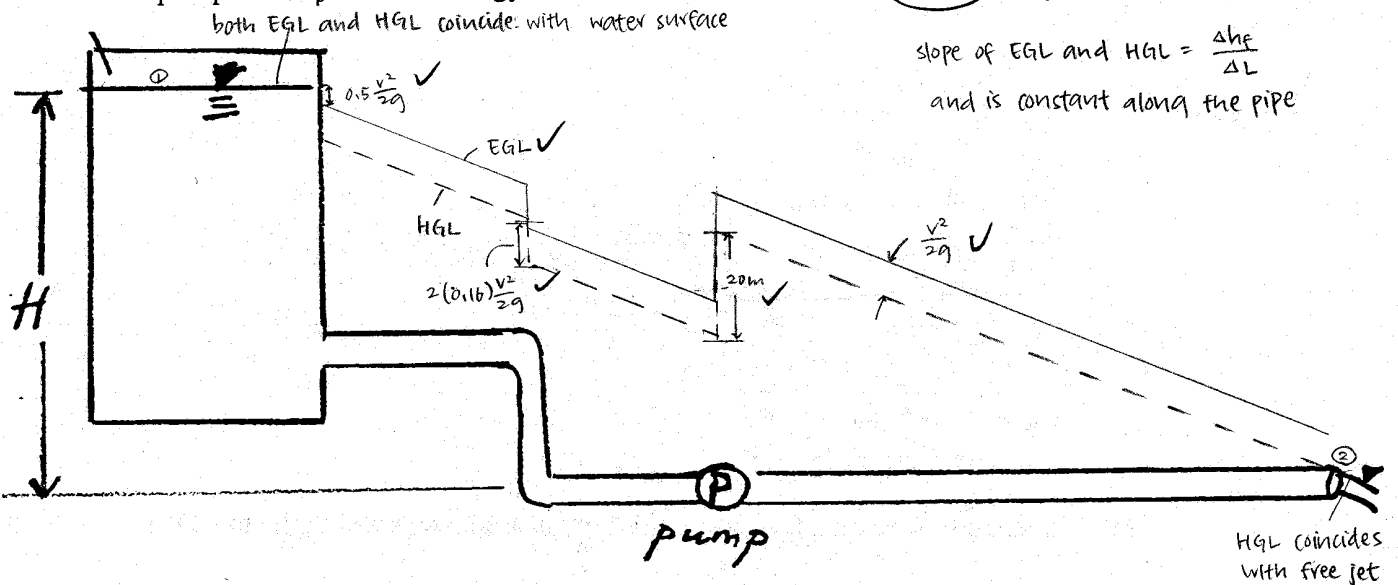 both EGL and HGL coincide with water surface
slope of EGL and HGL = Δhf/ΔL
and is constant along the pipe
①
0.5 v²/2g ✓
EGL ✓
HGL
2(0.16) v²/2g ✓
20m ✓
v²/2g ✓
H
②
P
pump
HGL coincides
with free jet